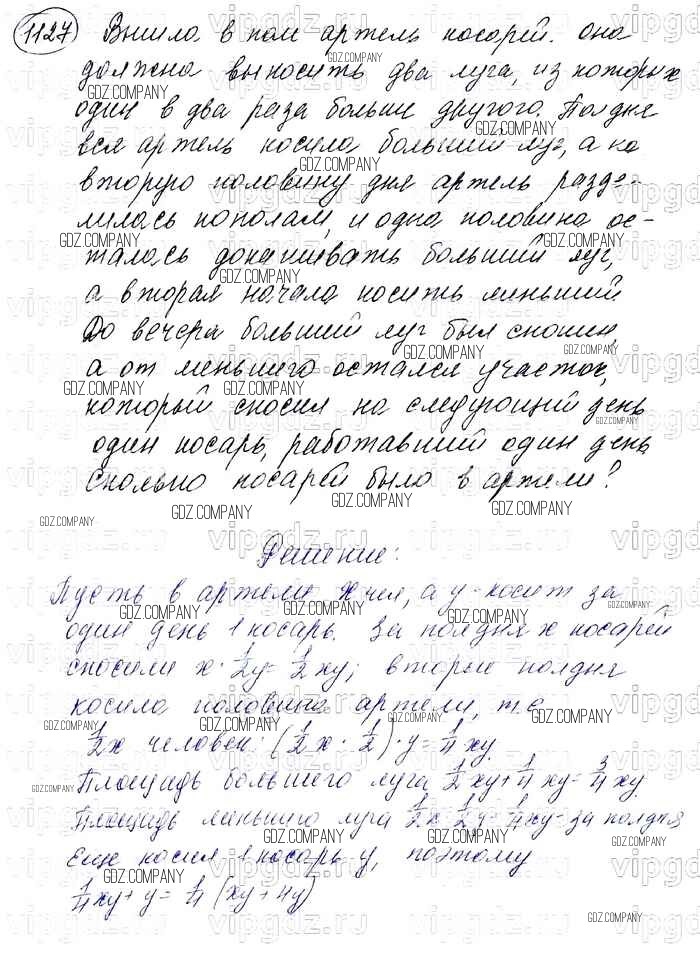 1127 Вышла в поле артель косарей. она
должна выкосить два луга, из которых
один в два раза больше другого. Полдня
вся артель косила больший луг, а на
вторую половину дня артель разде-
лилась пополам, и одна половина ос-
талась докашивать больший луг,
а вторая начала косить меньший
До вечера больший луг был скошен,
а от меньшего остался участок,
который скосил на следующий день
один косарь, работавший один день
Сколько косарей было в артели?
Решение:
Пусть в артели x чел, а y - косит за
один день 1 косарь. За полдня x косарей
скосили x · 1/2 y = 1/2 xy; вторые полдня
косило половина артели, т.е
1/2 x человек: (1/2 x · 1/2) · y = 1/4 xy
Площадь большего луга 1/2 xy + 1/4 xy = 3/4 xy.
Площадь меньшего луга 1/2 x · 1/2 y = 1/4 xy - за полдня
Еще косил 1 косарь y, поэтому
1/4 xy + y = 1/4 (xy + 4y)